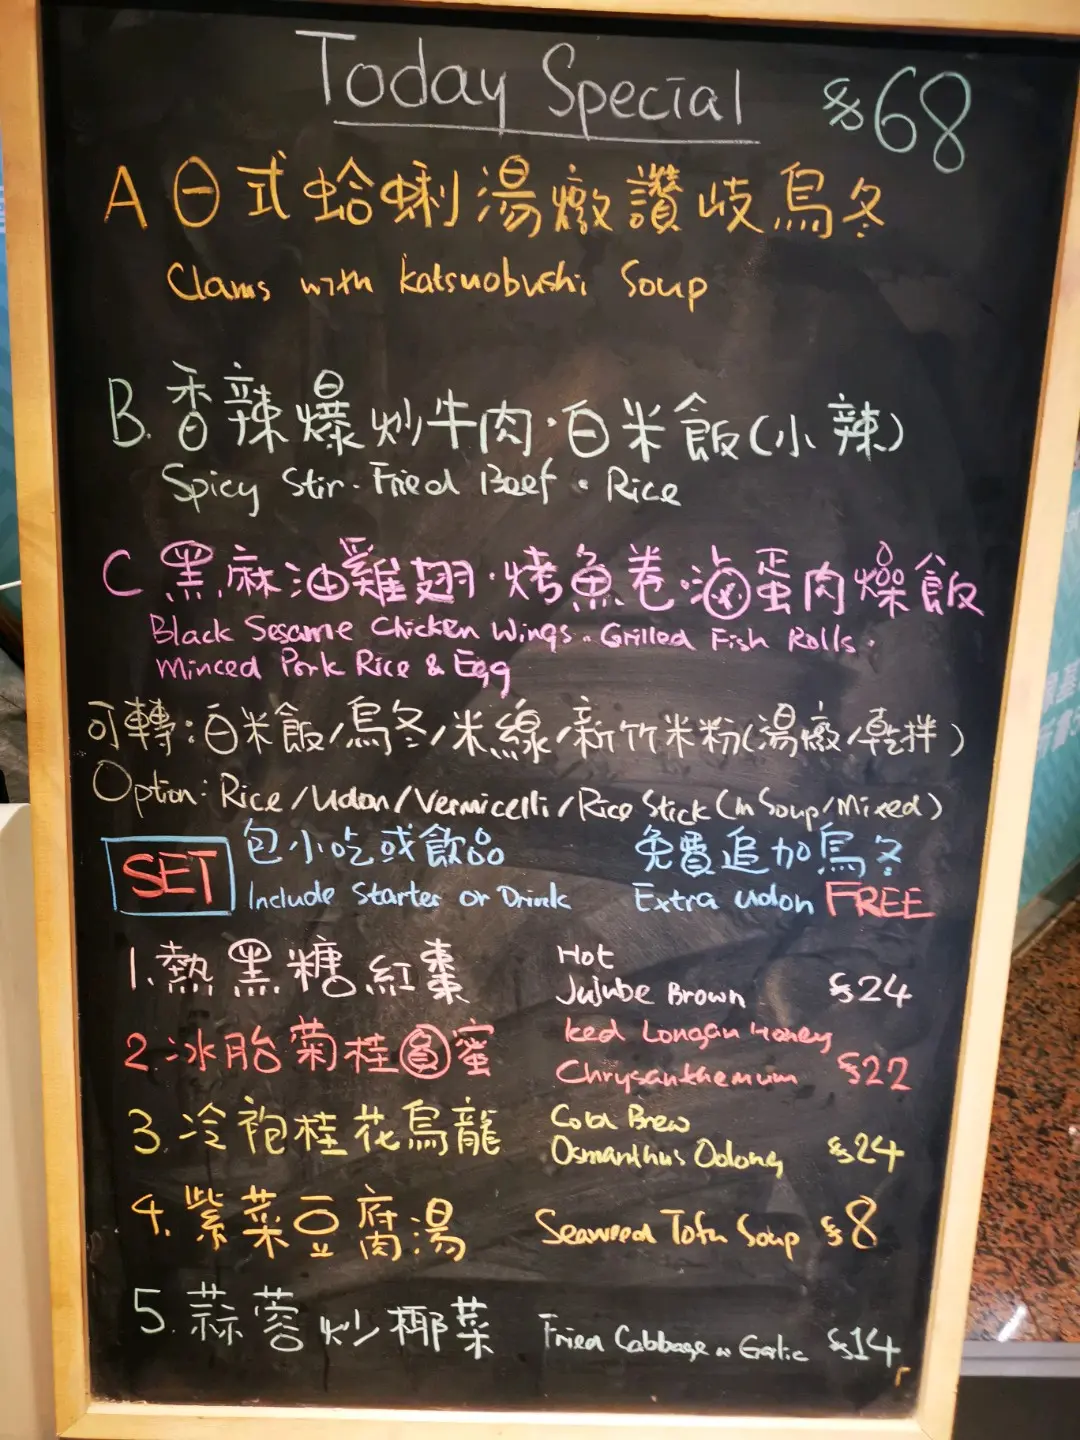 Today Special $68
A 日式蛤蜊湯燉讚岐烏冬
Clams with Katsuobushi Soup
B. 香辣爆炒牛肉·白米飯(小辣)
Spicy Stir-Fried Beef · Rice
C 黑麻油雞翅·烤魚卷·滷蛋肉燥飯
Black Sesame Chicken Wings · Grilled Fish Rolls ·
Minced Pork Rice & Egg
可轉:白米飯/烏冬/米線/新竹米粉(湯燉/乾拌)
Option: Rice/Udon/Vermicelli/Rice Stick (In Soup/Mixed)
SET 包小吃或飲品 免費追加烏冬
Include Starter or Drink Extra udon FREE
1. 熱黑糖紅棗 Hot
Jujube Brown $24
2. 冰胎菊桂圓蜜 Iced Longan Honey
Chrysanthemum $22
3. 冷袍桂花烏龍 Cold Brew
Osmanthus Oolong $24
4. 紫菜豆腐湯 Seaweed Tofu Soup $8
5. 蒜蓉炒椰菜 Fried Cabbage w Garlic $14